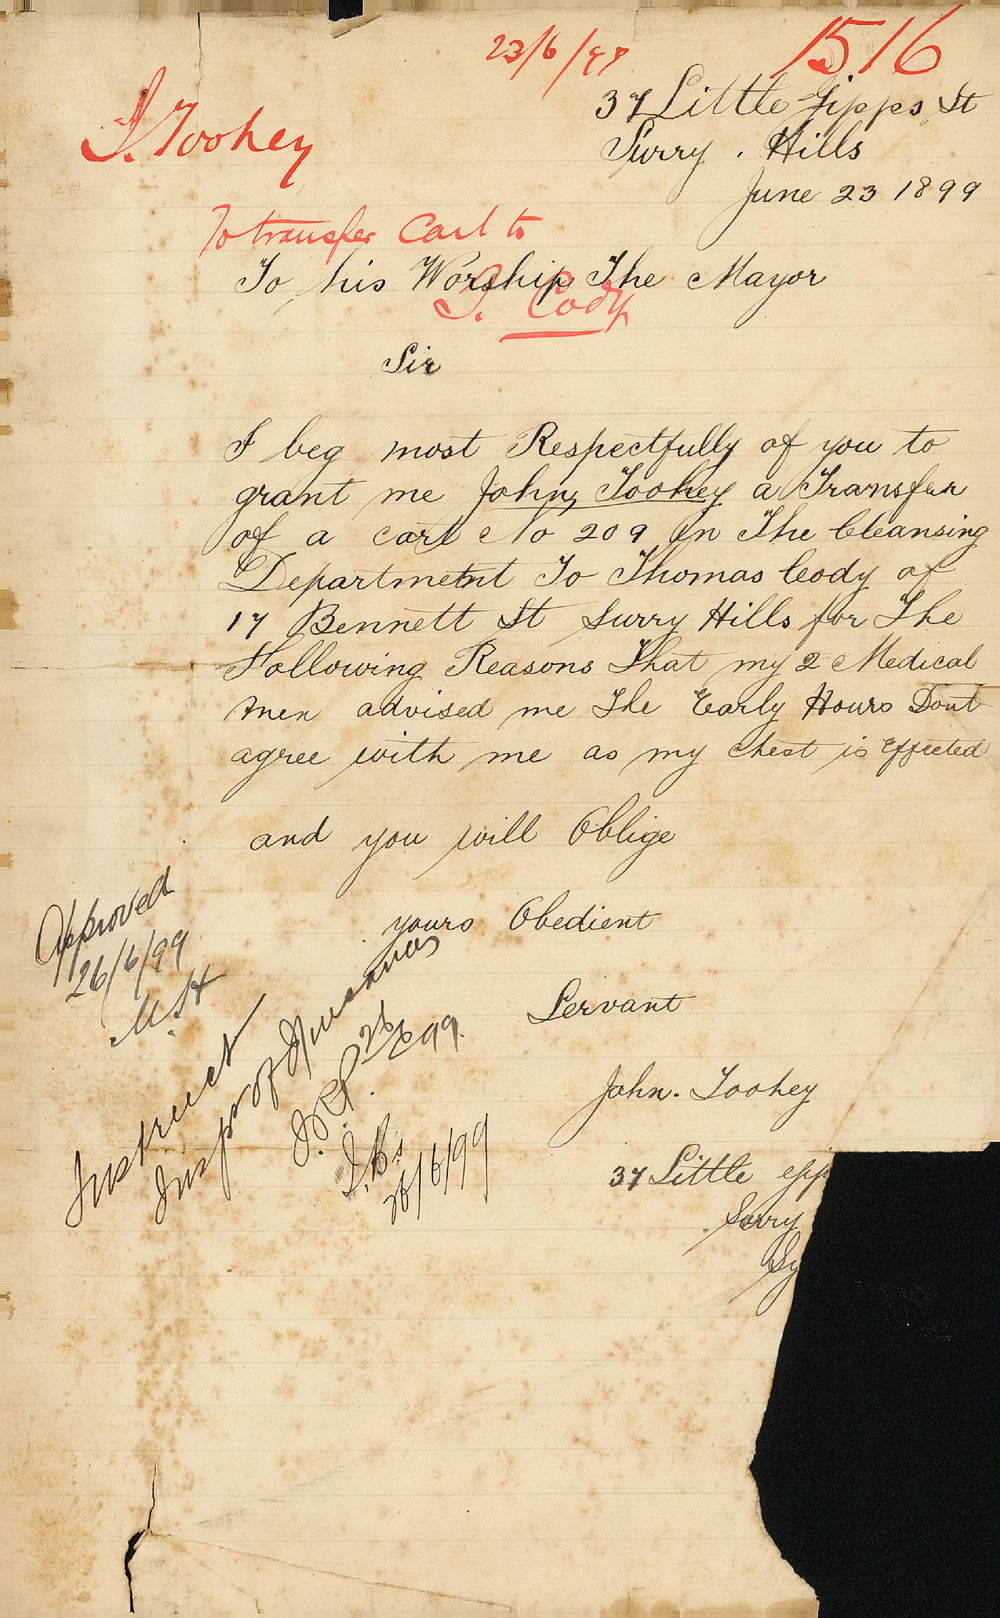 23/6/99
1516
J. Toohey
37 Little Gipps St
Surry . Hills
June 23 1899
To transfer Cart to
T. Cody
To his Worship The Mayor
Sir
I beg most Respectfully of you to
grant me John, Toohey a Transfer
of a cart No 209 In The Cleansing
Department To Thomas Cody of
17 Bennett St Surry Hills for The
Following Reasons That my 2 Medical
men advised me The Early Hours Dont
agree with me as my chest is Effected
and you will Oblige
yours Obedient
Servant
John. Toohey
37 Little epp
Surry
Sy
Approved
26/6/99
Instruct
Inspr of Nuisances
26/6/99
26/6/99